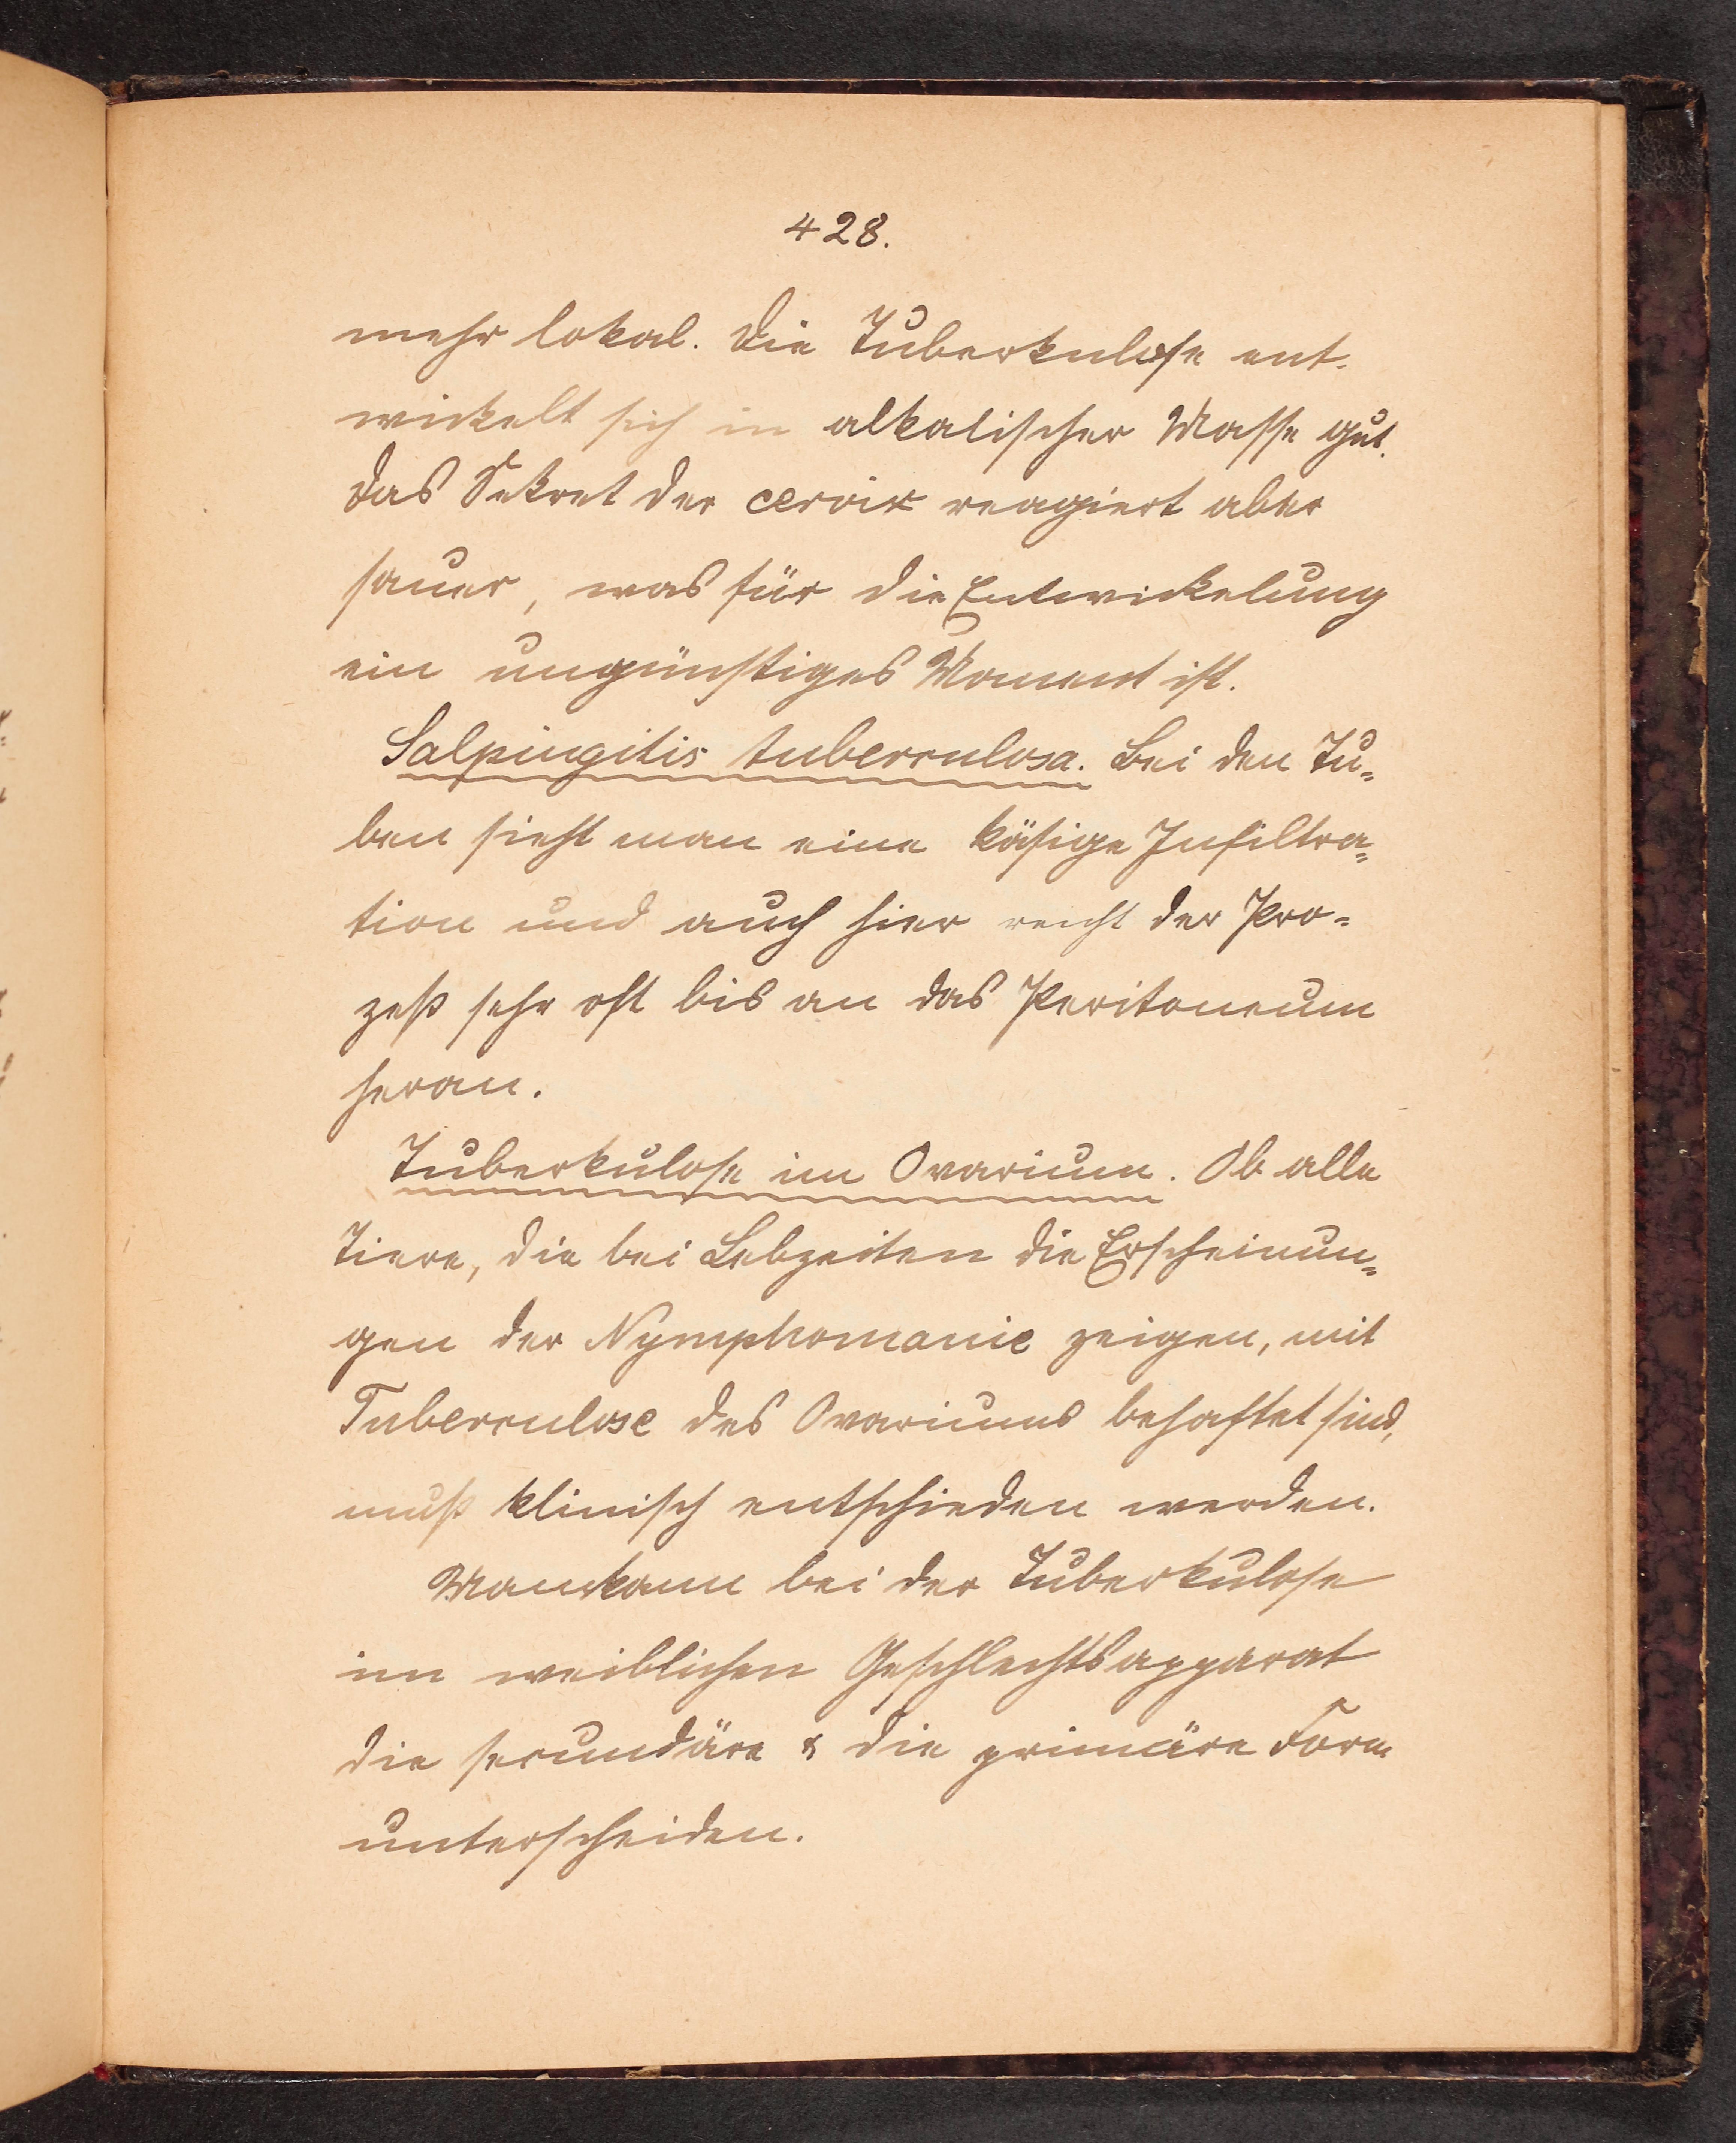 428.
mehr lokal. Die Tuberkulose ent-
wickelt sich in alkalischer Masse gut.
Das Sekret der cervix reagiert aber
sauer, was für die Entwickelung
ein ungünstiges Moment ist.
Salpingitis tuberculosa. Bei den Tu=
ben sieht man eine käsige Infiltra=
tion und auch hier reicht der Pro=
zeß sehr oft bis an das Peritoneum
heran.
Tuberkulose im Ovarium. Ob alle
Tiere, die bei Lebzeiten die Erscheinun=
gen der Nymphomanie zeigen, mit
Tuberculose des Ovariums behaftet sind,
muß klinisch entschieden werden.
Man kann bei der Tuberkulose
im weiblichen Geschlechtsapparat
die secundäre & die primäre Form
unterscheiden.